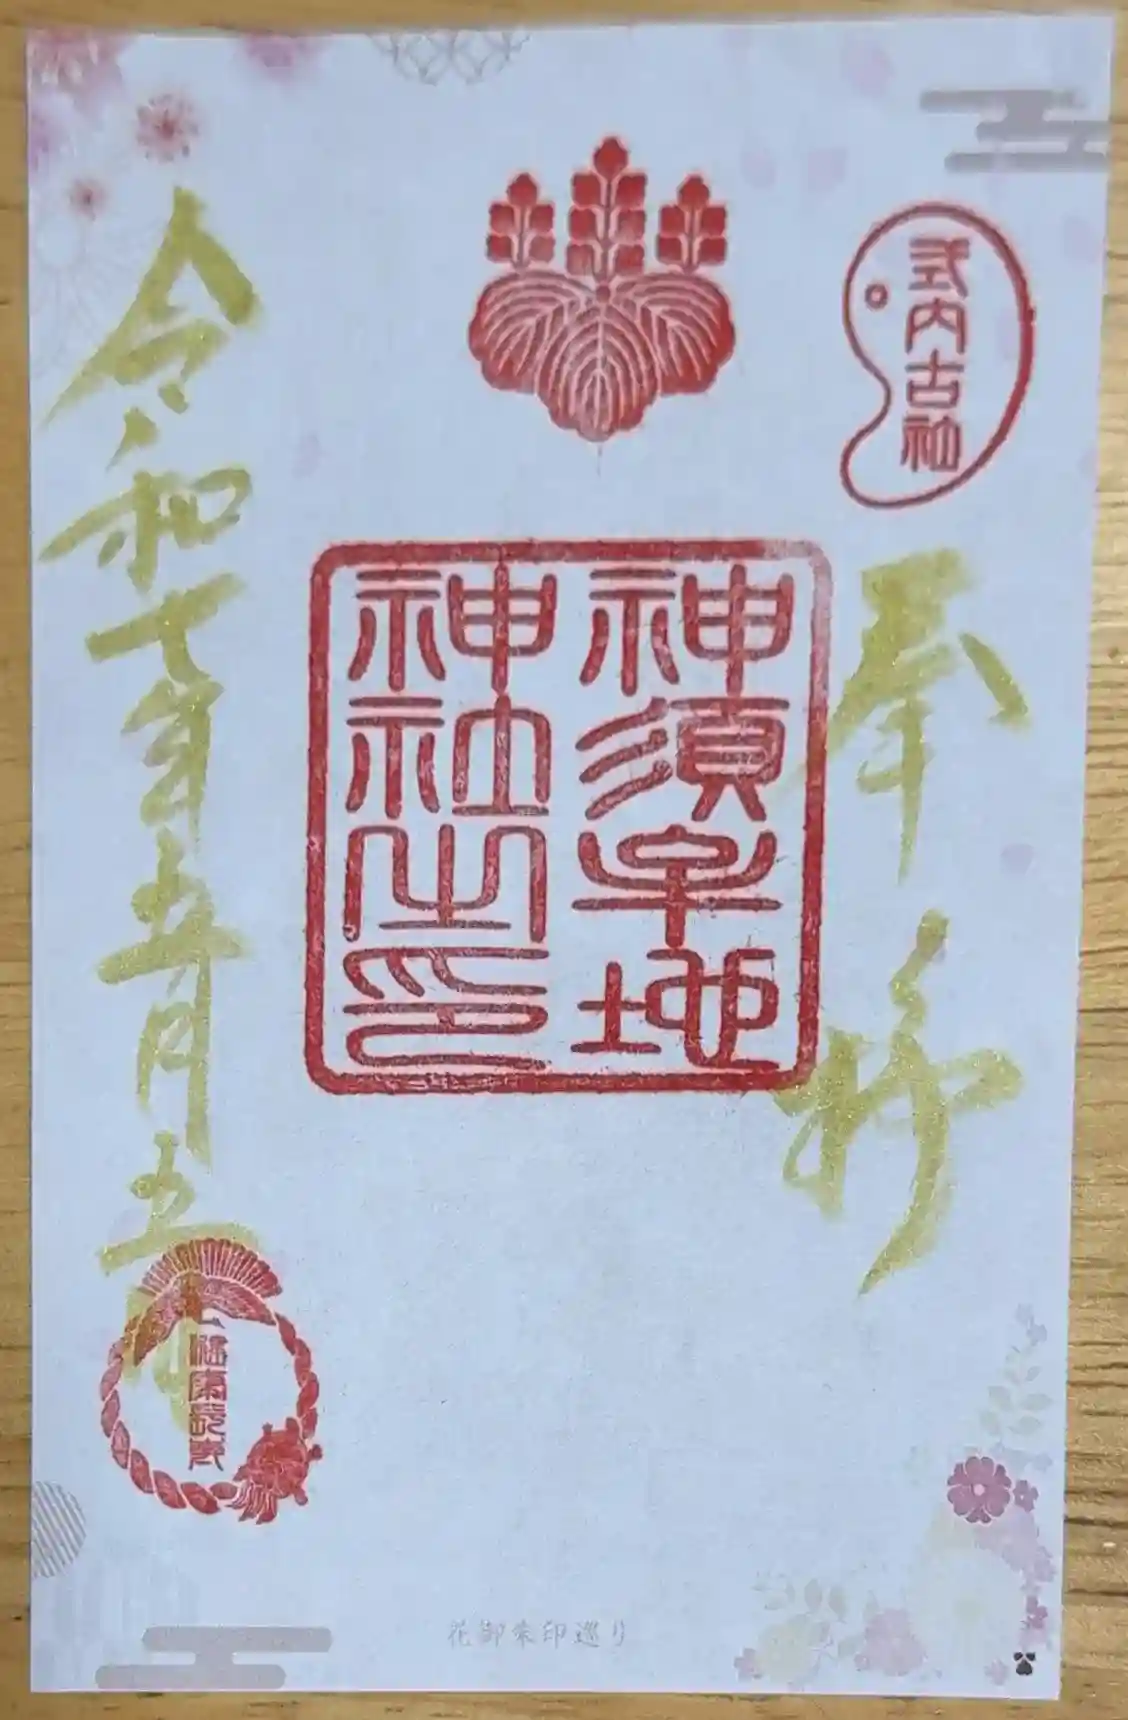 式内古社
奉拝
神須牟地
神社之印
令和七年五月五日
健康長寿
花御朱印巡り